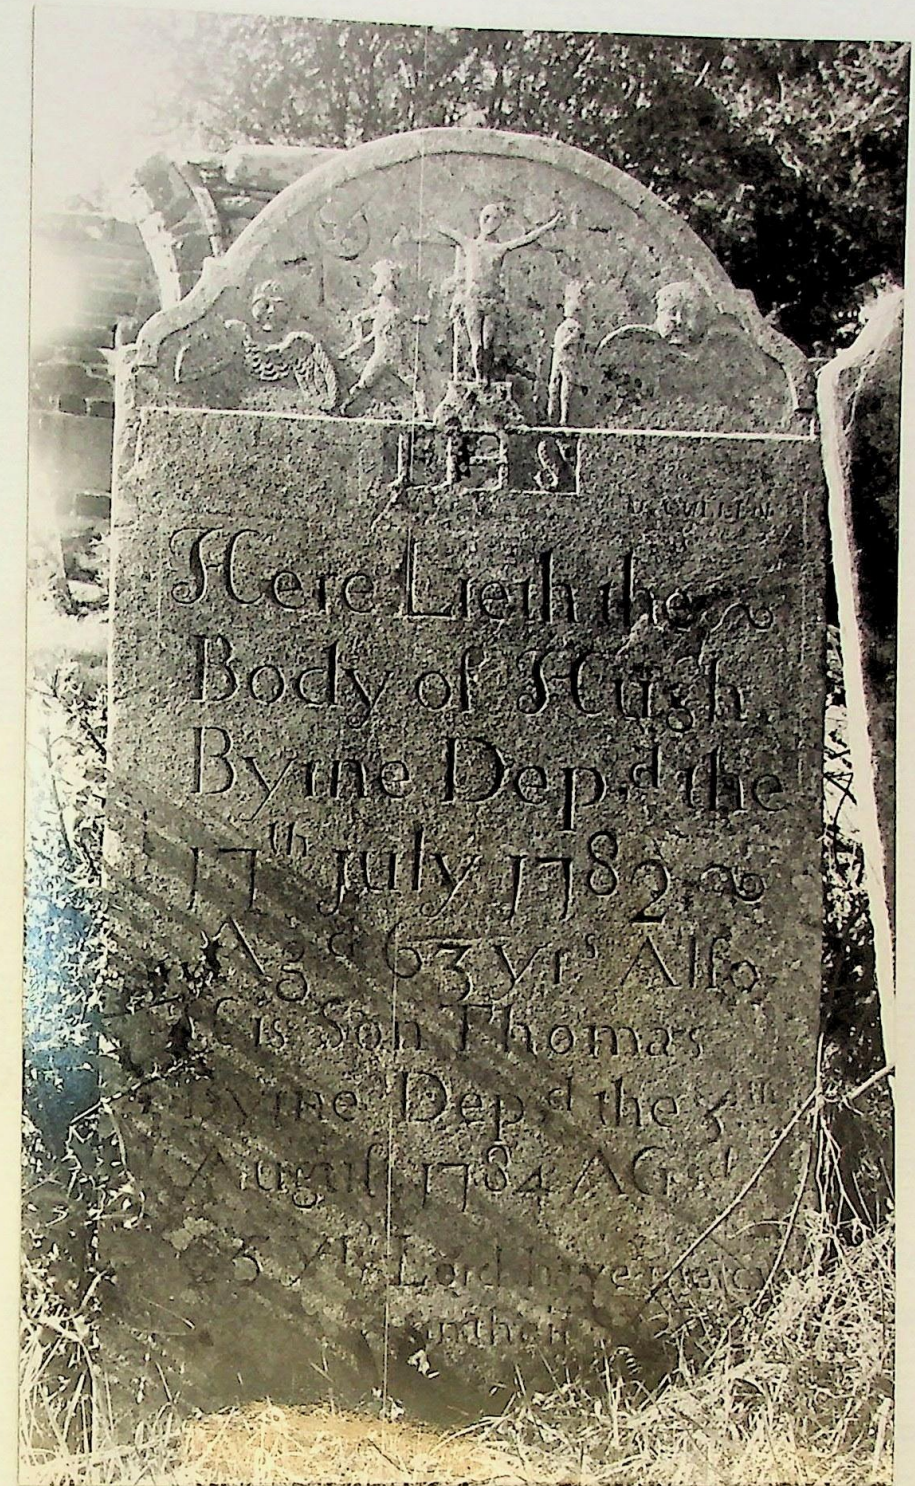 IHS
Here Lieth the
Body of Hugh
Byrne Depd. the
17th July 1782
Agd 63 yrs Also
his Son Thomas
Byrne Depd the 5th
August 1784 Agd
23 yrs Lord have mercy
on their